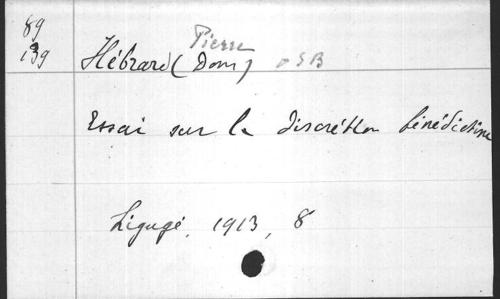 89
139
Pierre
Hébrard (Dom) OSB
Essai sur la discrétion bénédictine
Ligugé, 1913, 8°